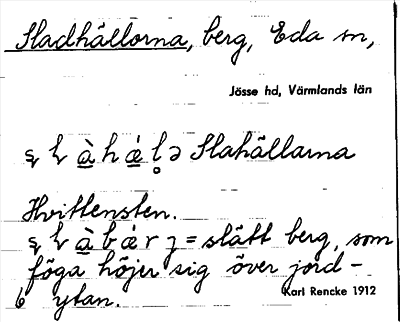 Sladhällorna, berg, Eda sn,
Jösse hd, Värmlands län
Slahällarna
Hvittensten.
= slätt berg, som
föga höjer sig över jord-
6 ytan.
Karl Rencke 1912